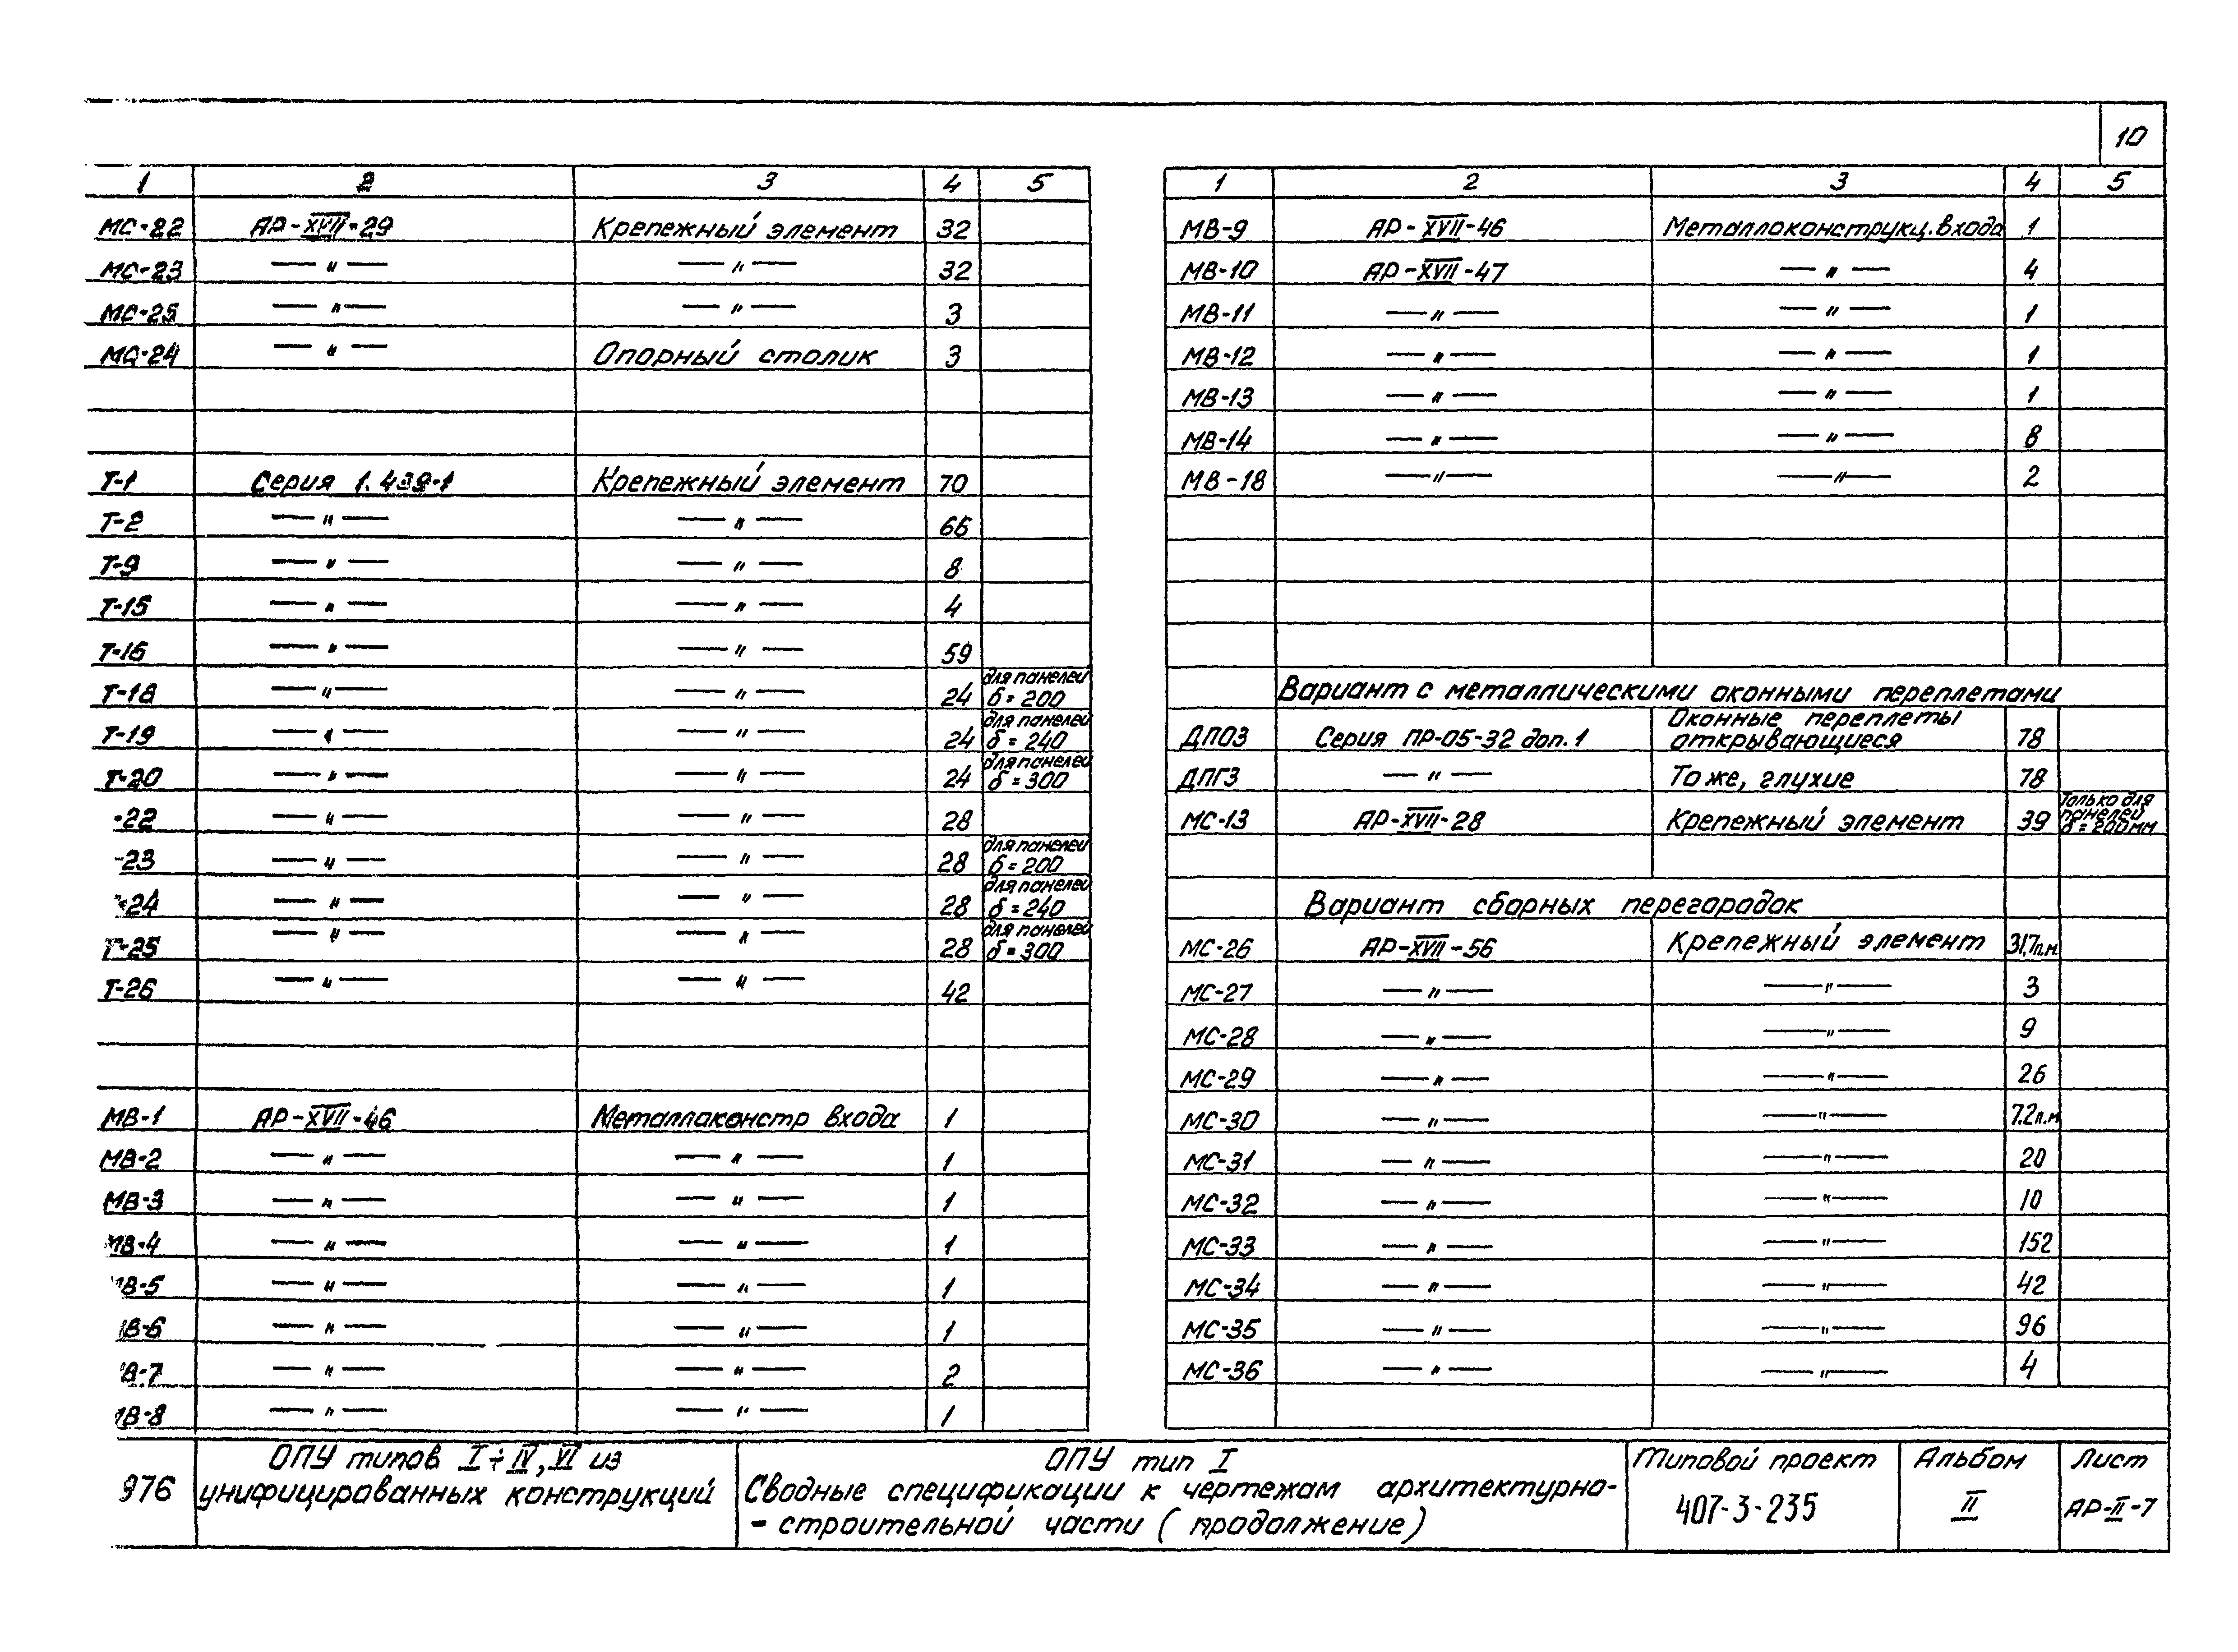 10
1 2 3 4 5
МС-22 АР-XVII-29 Крепежный элемент 32
МС-23 — " — — " — 32
МС-25 — " — — " — 3
МС-24 — " — Опорный столик 3
Т-1 Серия 1.439-1 Крепежный элемент 70
Т-2 — " — — " — 66
Т-9 — " — — " — 8
Т-15 — " — — " — 4
Т-16 — " — — " — 59
Т-18 — " — — " — 24 для панелей δ=200
Т-19 — " — — " — 24 для панелей δ=240
Т-20 — " — — " — 24 для панелей δ=300
-22 — " — — " — 28
-23 — " — — " — 28 для панелей δ=200
-24 — " — — " — 28 для панелей δ=240
Т-25 — " — — " — 28 для панелей δ=300
Т-26 — " — — " — 42
МВ-1 АР-XVII-46 Металлоконстр входа 1
МВ-2 — " — — " — 1
МВ-3 — " — — " — 1
МВ-4 — " — — " — 1
МВ-5 — " — — " — 1
В-6 — " — — " — 1
В-7 — " — — " — 2
В-8 — " — — " — 1
1 2 3 4 5
МВ-9 АР-XVII-46 Металлоконструкц. входа 1
МВ-10 АР-XVII-47 — " — 4
МВ-11 — " — — " — 1
МВ-12 — " — — " — 1
МВ-13 — " — — " — 1
МВ-14 — " — — " — 8
МВ-18 — " — — " — 2
Вариант с металлическими оконными переплетами
ДПО3 Серия ПР-05-32 доп. 1 Оконные переплеты открывающиеся 78
ДПГ3 — " — То же, глухие 78
МС-13 АР-XVII-28 Крепежный элемент 39 Только для панелей δ=200мм
Вариант сборных перегородок
МС-26 АР-XVII-56 Крепежный элемент 31,7п.м.
МС-27 — " — — " — 3
МС-28 — " — — " — 9
МС-29 — " — — " — 26
МС-30 — " — — " — 7.2п.м
МС-31 — " — — " — 20
МС-32 — " — — " — 10
МС-33 — " — — " — 152
МС-34 — " — — " — 42
МС-35 — " — — " — 96
МС-36 — " — — " — 4
976
ОПУ типов I÷IV, VI из
унифицированных конструкций
ОПУ тип I
Сводные спецификации к чертежам архитектурно-
- строительной части (продолжение)
Типовой проект
407-3-235
Альбом
II
Лист
АР-II-7